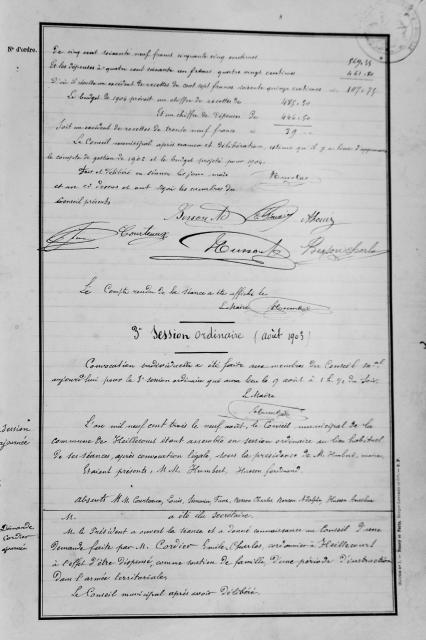 N° d'ordre.
De cinq cent soixante neuf francs cinquante cinq centimes 569.55
Et les dépenses à quatre cent soixante un francs quatre vingt centimes 461.80
D'où il résulte un excédent de recettes de cent sept francs soixante quinze centimes 107.75
Le budget de 1904 prévoit un chiffre de recettes de 485.50
Et un chiffre de dépenses de 446.50
Soit un excédent de recettes de trente neuf francs 39
Le Conseil municipal après examen et délibération, estime qu'il y a lieu d'approuver
le compte de gestion de 1902 et le budget projeté pour 1904.
Fait et délibéré en séance les jour, mois
et an ci dessus et ont signé les membres du
Conseil présents
Le Compte rendu de la séance a été affiché le
Le Maire
3e Session ordinaire (août 1903)
Convocation individuelle a été faite aux membres du Conseil mal
aujourd'hui pour la 3e session ordinaire qui aura lieu le 9 août à 1 h. ½ du soir
Le Maire
Session
ajournée
L'an mil neuf cent trois le neuf août, le Conseil municipal de la
commune de Heillecourt étant assemblé en session ordinaire au lieu habituel
de ses séances, après convocation légale, sous la présidence de M. Humbert, maire,
Étaient présents, M.M. Humbert, Husson Ferdinand.
absents M.M. Courteaux, Louis, Bresson Charles Bresson Adolphe, Husson
M. a été élu secrétaire.
Demande
Cordier
ajournée
M. le Président a ouvert la séance et a donné connaissance au Conseil d'une
demande faite par M. Cordier Emile, Charles, cordonnier à Heillecourt
à l'effet d'être dispensé, comme soutien de famille, d'une période d'instruction
dans l'armée territoriale.
Le Conseil municipal après avoir délibéré.